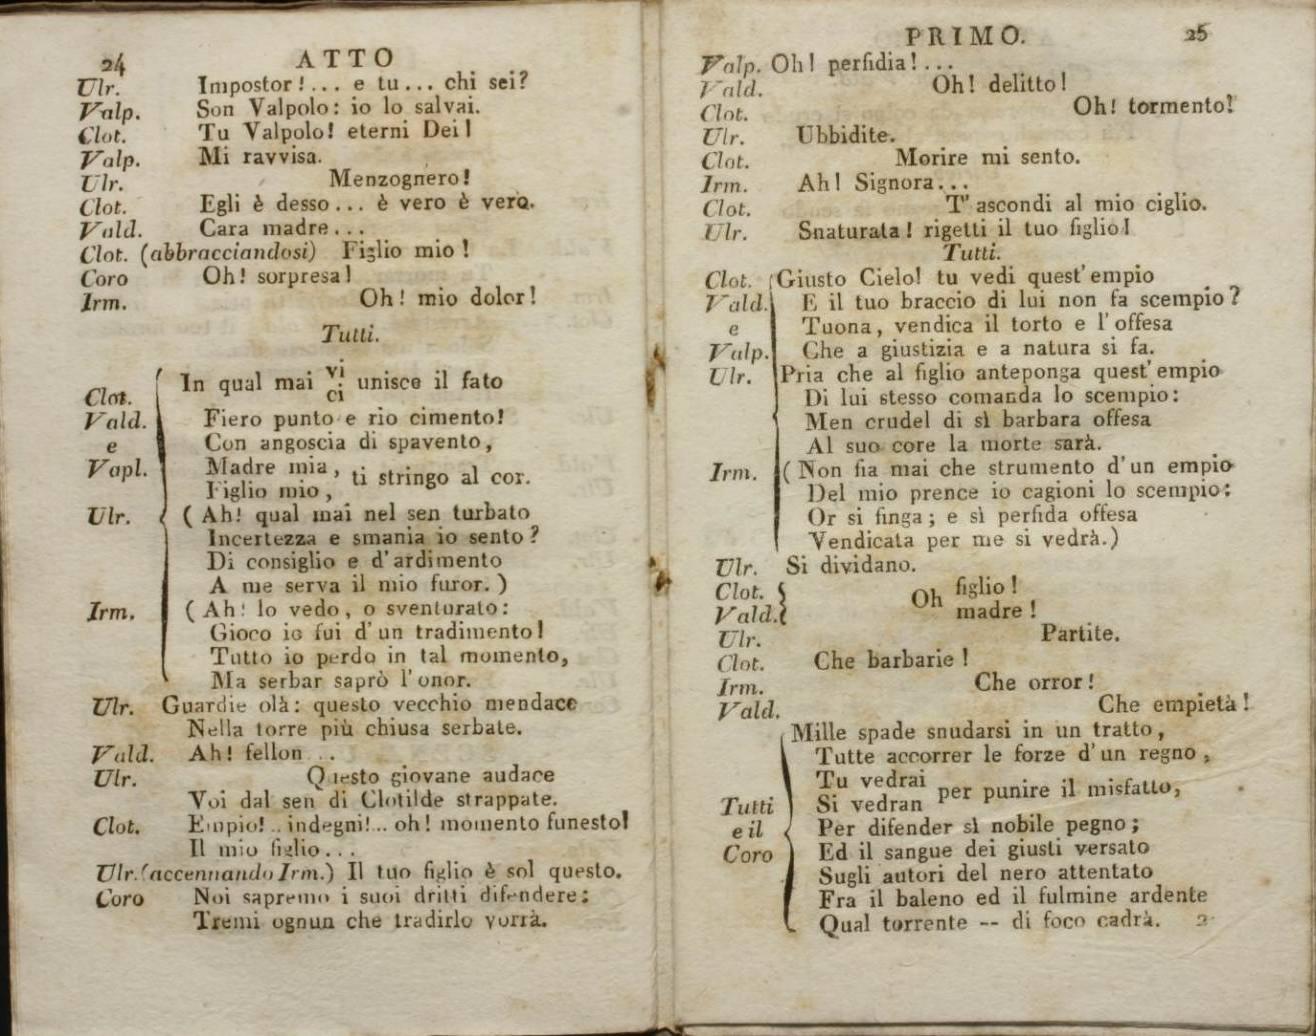 24 ATTO
Ulr. Impostor!... e tu... chi sei?
Valp. Son Valpolo: io lo salvai.
Clot. Tu Valpolo! eterni Dei!
Valp. Mi ravvisa.
Ulr. Menzognero!
Clot. Egli è desso... è vero è vero.
Vald. Cara madre...
Clot. (abbracciandosi) Figlio mio!
Coro Oh! sorpresa!
Irm. Oh! mio dolor!
Tutti.
In qual mai vi unisce il fato
Clot. ci
Vald. Fiero punto e rio cimento!
e Con angoscia di spavento,
Vapl. Madre mia, ti stringo al cor.
Figlio mio,
Ulr. (Ah! qual mai nel sen turbato
Incertezza e smania io sento?
Di consiglio e d'ardimento
A me serva il mio furor.)
Irm. (Ah! lo vedo, o sventurato:
Gioco io fui d'un tradimento!
Tutto io perdo in tal momento,
Ma serbar saprò l'onor.
Ulr. Guardie olà: questo vecchio mendace
Nella torre più chiusa serbate.
Vald. Ah! fellon...
Ulr. Questo giovane audace
Voi dal sen di Clotilde strappate.
Clot. Empio!.. indegni!.. oh! momento funesto!
Il mio figlio...
Ulr. (accennando Irm.) Il tuo figlio è sol questo.
Coro Noi sapremo i suoi dritti difendere;
Tremi ognun che tradirlo vorrà.
PRIMO. 25
Valp. Oh! perfidia!...
Vald. Oh! delitto!
Clot. Oh! tormento!
Ulr. Ubbidite.
Clot. Morire mi sento.
Irm. Ah! Signora...
Clot. T'ascondi al mio ciglio.
Ulr. Snaturata! rigetti il tuo figlio!
Tutti.
Clot. Giusto Cielo! tu vedi quest'empio
Vald. E il tuo braccio di lui non fa scempio?
e Tuona, vendica il torto e l'offesa
Valp. Che a giustizia e a natura si fa.
Ulr. Pria che al figlio anteponga quest'empio
Di lui stesso comanda lo scempio:
Men crudel di sì barbara offesa
Al suo core la morte sarà.
Irm. (Non fia mai che strumento d'un empio
Del mio prence io cagioni lo scempio:
Or si finga; e sì perfida offesa
Vendicata per me si vedrà.)
Ulr. Si dividano.
Clot. Oh figlio!
Vald. madre!
Ulr. Partite.
Clot. Che barbarie!
Irm. Che orror!
Vald. Che empietà!
Mille spade snudarsi in un tratto,
Tutte accorrer le forze d'un regno,
Tu vedrai per punire il misfatto,
Tutti Si vedran
e il Per difender sì nobile pegno;
Coro Ed il sangue dei giusti versato
Sugli autori del nero attentato
Fra il baleno ed il fulmine ardente
Qual torrente -- di foco cadrà. 2